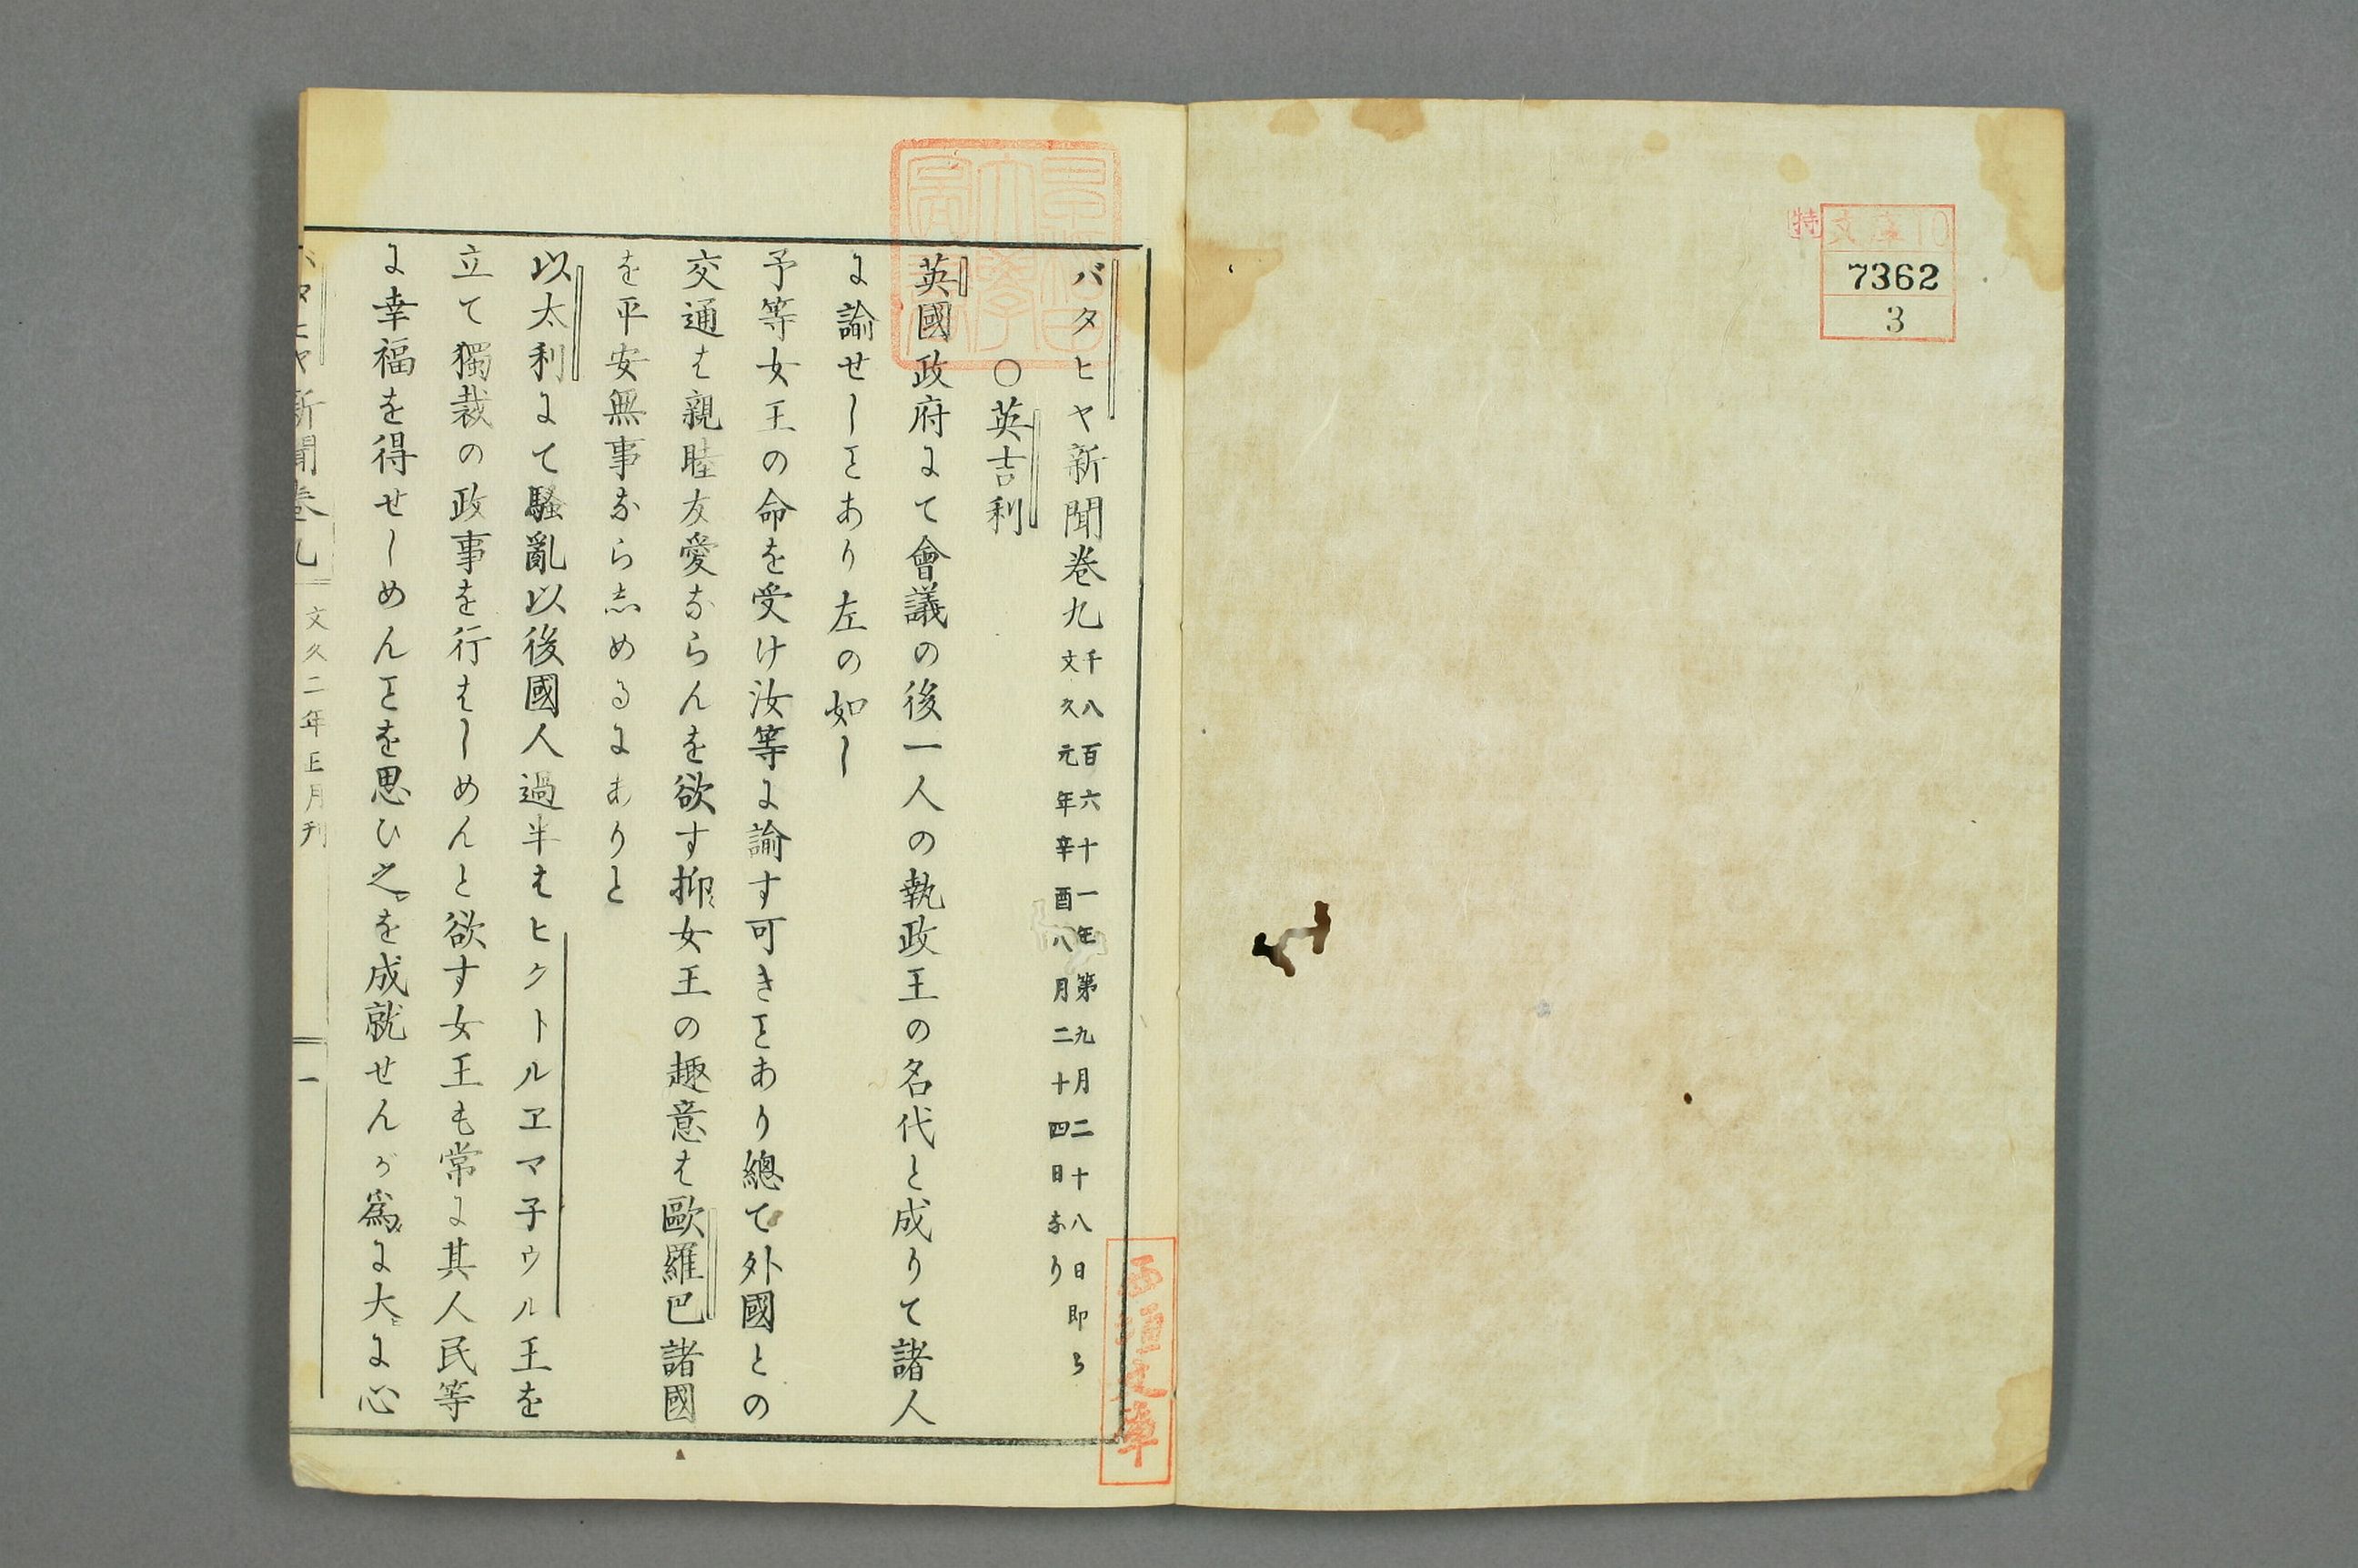 特
文庫10
7362
3
バタヒヤ新聞巻九
千八百六十一年第九月二十八日即ち
文久元年辛酉八月二十四日なり
○英吉利
英國政府にて會議の後一人の執政王の名代と成りて諸人
に諭せしヿあり左の如し
予等女王の命を受け汝等に諭す可きヿあり總て外國との
交通は親睦友愛ならんを欲す抑女王の趣意は歐羅巴諸國
を平安無事ならしめるにありと
以太利にて騷亂以後國人過半はヒクトルヱマ子ウル王を
立て獨裁の政事を行はしめんと欲す女王も常に其人民等
に幸福を得せしめんヿを思ひ之を成就せんが爲に大に心
バタヒヤ新聞巻九
文久二年正月刊
一